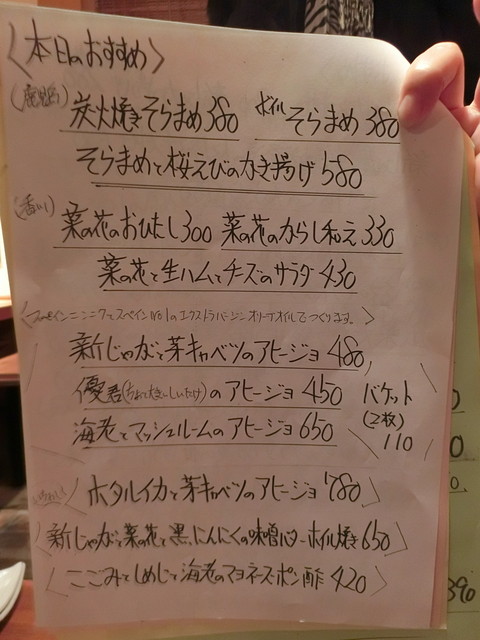 〈本日のおすすめ〉
(鹿児島) 炭火焼きそらまめ380 ボイルそらまめ380
そらまめと桜えびのかき揚げ580
(香川) 菜の花のおひたし300 菜の花のからし和え330
菜の花と生ハムとチーズのサラダ430
スペインNo.1のエクストラバージンオリーブオイルでつくります。〉
新じゃがと芽キャベツのアヒージョ480
優君(ちょっと大きいしいたけ)のアヒージョ450
海老とマッシュルームのアヒージョ650
バケット
(2枚)
110
ホタルイカと芽キャベツのアヒージョ780〉
〈新じゃがと菜の花と黒にんにくの味噌バターホイル焼き650〉
〈こごみとしめじと海老のマヨネーズポン酢420〉
0
0
0
390